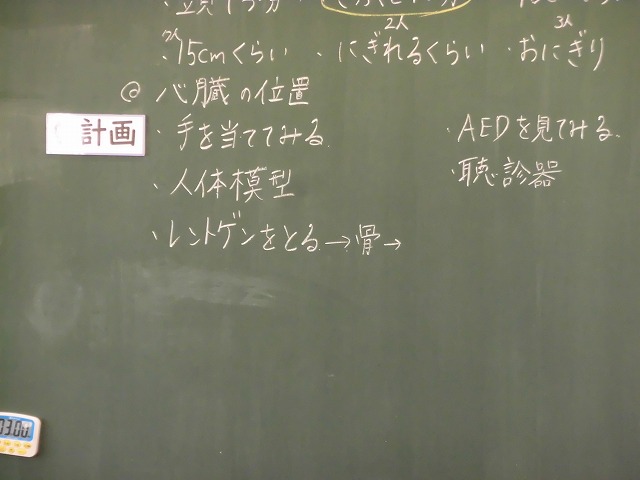 2人 3人
・15cmくらい ・にぎれるくらい ・おにぎり
◎ 心臓の位置
計画 ・手を当ててみる ・AEDを見てみる。
・人体模型 ・聴診器
・レントゲンをとる→骨→